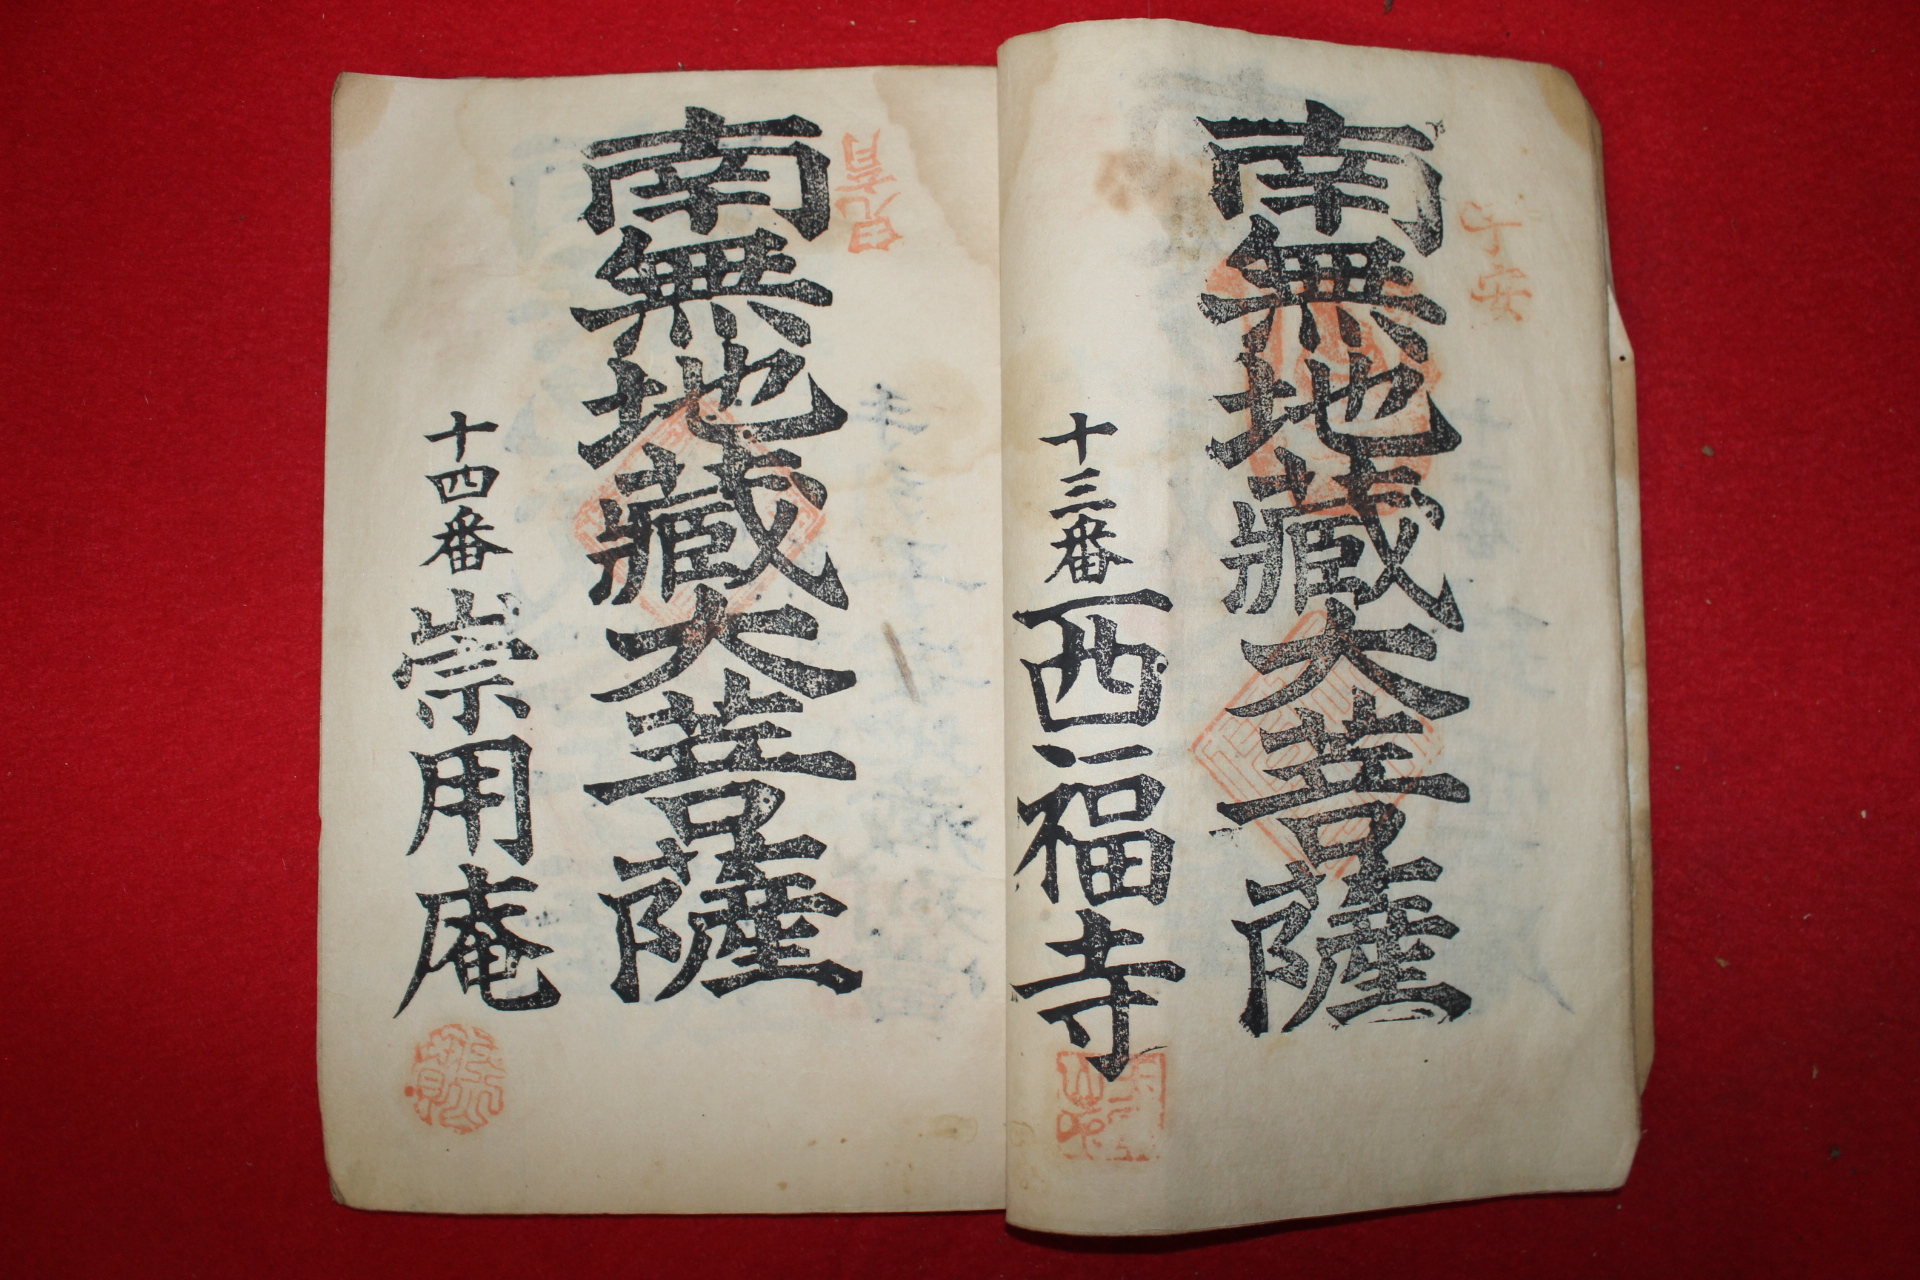 子安
南無地藏大菩薩
十三番 西福寺
南無地藏大菩薩
十四番 崇用庵